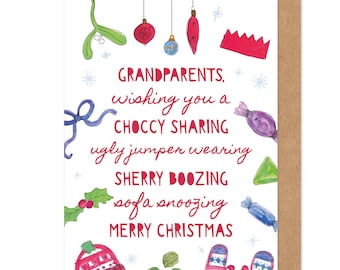 GRANDPARENTS,
wishing you a
CHOCCY SHARING
ugly jumper wearing
SHERRY BOOZING
sofa snoozing
MERRY CHRISTMAS